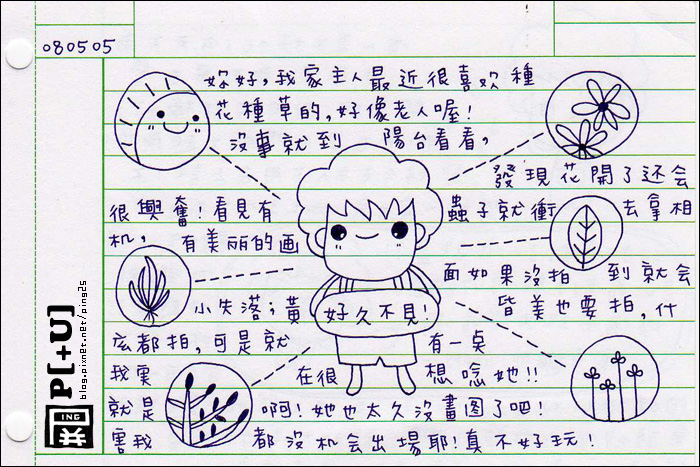 080505
妳好,我家主人最近很喜欢種
花種草的,好像老人喔!
沒事就到 陽台看看,
發現花開了还会
很興奮!看見有 蟲子就衝 去拿相
机, 有美丽的画 面如果沒拍 到就会
小失落;黃 好久不見! 昏美也要拍,什
庅都拍,可是就 有一奌
我実 在很 想唸她!!
就是 啊!她也太久沒畫图了吧!
害我 都沒机会出場耶!真不好玩!
P[+U]
blog.pixnet.net/ping25
ING